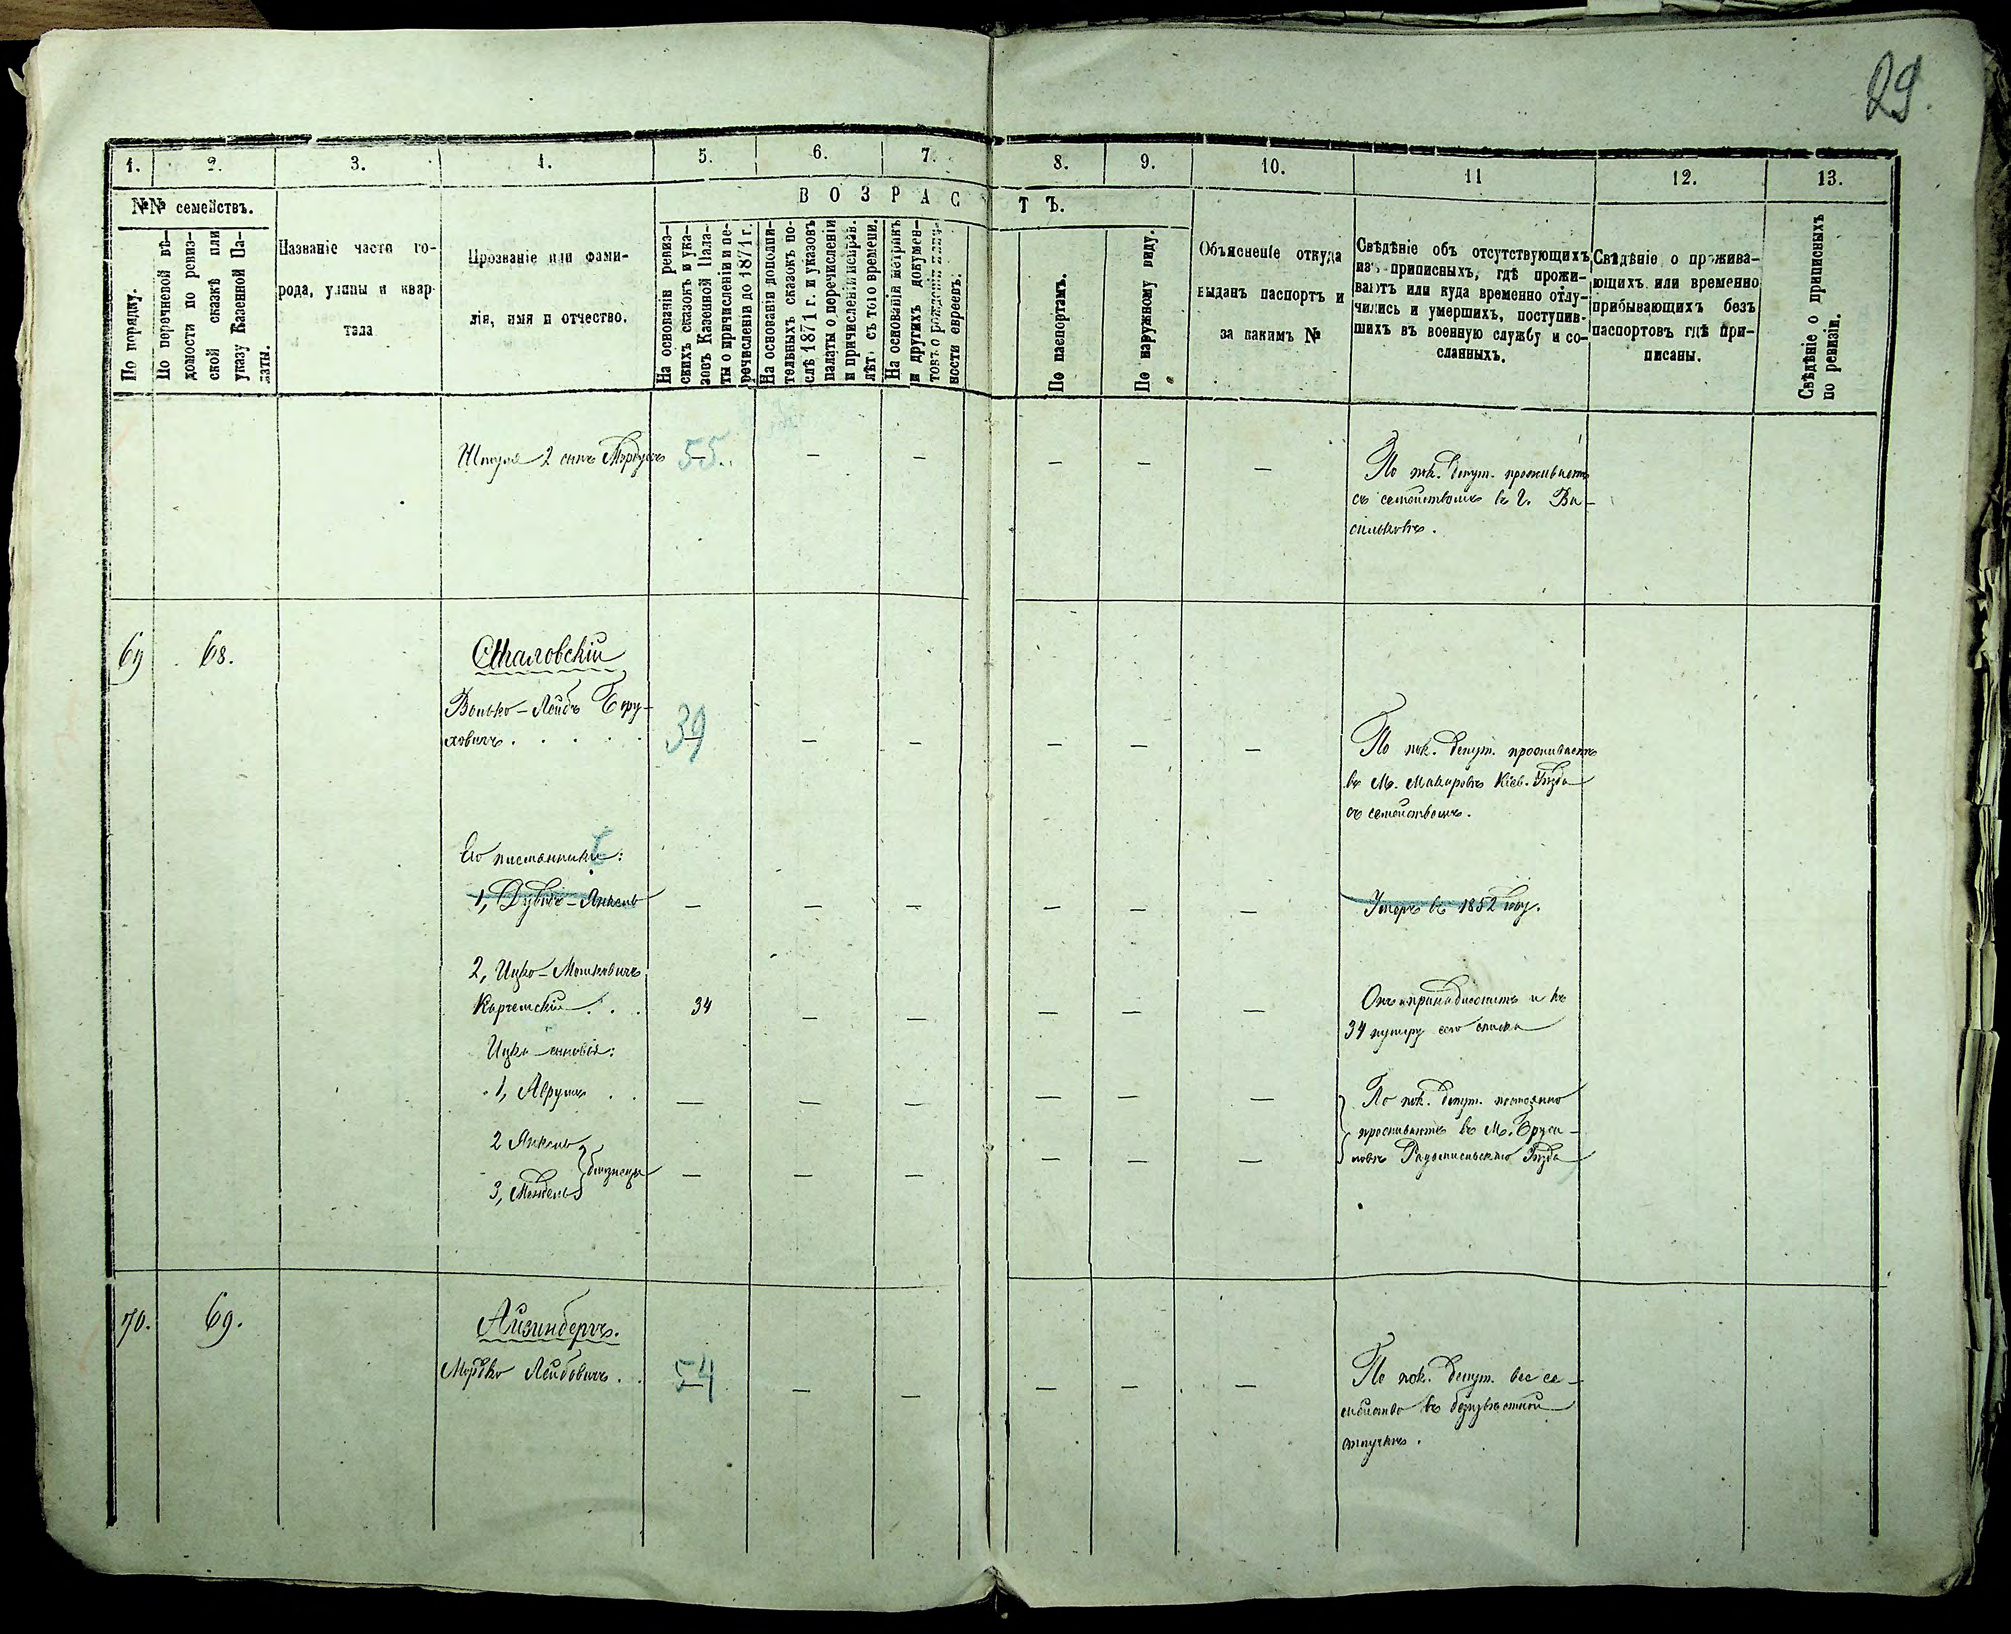 29.
1. 2. 3. 4. 5. 6. 7. 8. 9. 10. 11 12. 13.
№№ семействъ.
ВОЗРАСТЪ.
По порядку.
По перечневой вѣ-
домости по ревиз-
ской сказкѣ или
указу Казенной Па-
латы.
Названіе части го-
рода, улицы и квар-
тала
Прозваніе или фами-
лія, имя и отчество.
На основаніи ревиз-
скихъ сказокъ и ука-
зовъ Казенной Пала-
ты о причисленіи и пе-
речисленіи до 1871 г.
На основаніи дополни-
тельныхъ сказокъ по-
слѣ 1871 г. и указовъ
палаты о перечисленіи
и причисленіи неправ.
лѣтъ съ того времени.
На основаніи метрикъ
и другихъ докумен-
товъ о рожденіи
ности евреевъ.
По паспортамъ.
По наружному виду.
Объясненіе откуда
выданъ паспортъ и
за какимъ №
Свѣдѣніе объ отсутствующихъ
изъ приписныхъ, гдѣ прожи-
ваютъ или куда временно отлу-
чились и умершихъ, поступив-
шихъ въ военную службу и со-
сланныхъ.
Свѣдѣніе о прожива-
ющихъ или временно
прибывающихъ безъ
паспортовъ гдѣ при-
писаны.
Свѣдѣніе о приписныхъ
по ревизіи.
2 сынъ 55. — — — — — По пок. депут. проживаетъ
съ семействомъ въ г. Ва-
сильковѣ.
69 68. Сталовскій
Волько-Лейбъ Беру-
ховичъ 39 — — — — — По пок. депут. проживаетъ
въ М. Макаровѣ Кіев. Уѣзда
съ семействомъ.
Его племянники:
1, Дувидъ-Янкель — — — — — — Умеръ въ 1852 году.
2, Ицко-Мошковичъ
34 — — — — — Онъ принадлежитъ и къ
34 нумеру сего списка
Ицки сыновья:
1, Аврумъ — — — — — — По пок. депут. постоянно
2 Янкель проживаютъ въ М. Бруси-
3, Мендель близнецы — — — — — — ловѣ Радомысльскаго Уѣзда
70. 69. Айзинбергъ.
Мордко Лейбовичъ 54 — — — — — По пок. депут. все се-
мейство въ безизвѣстной
отлучкѣ.